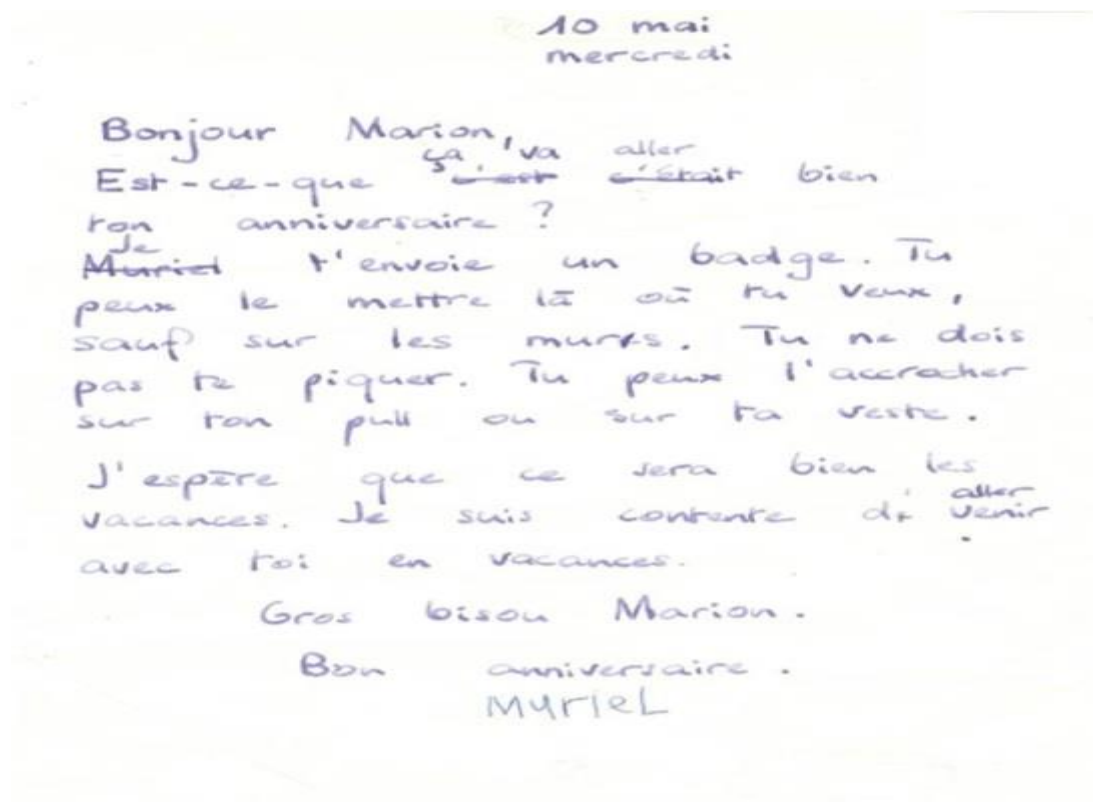 10 mai
mercredi
Bonjour Marion,
ça va aller
Est-ce-que c'est c'était bien
ton anniversaire ?
Je
Muriel t'envoie un badge. Tu
peux le mettre là où tu veux,
sauf sur les murs. Tu ne dois
pas te piquer. Tu peux l'accrocher
sur ton pull ou sur ta veste.
J'espère que ce sera bien les
aller
vacances. Je suis contente d' venir
avec toi en vacances.
Gros bisou Marion.
Bon anniversaire.
MUrIeL